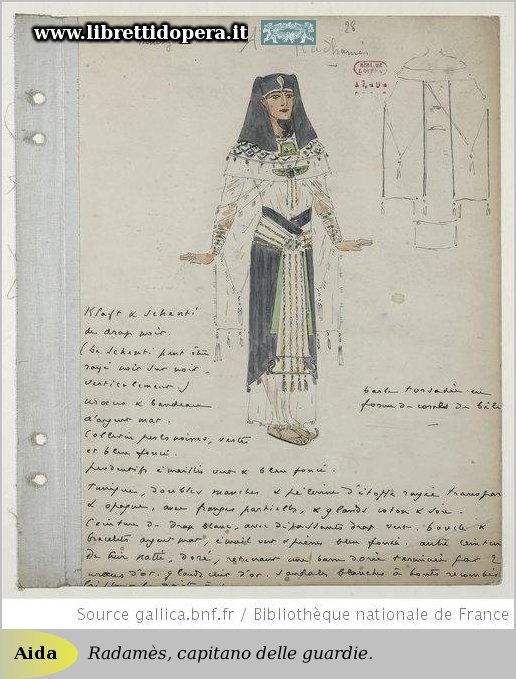 www.librettidopera.it
28
Radhamès
Klaft & Schenti
de drap noir.
(Le Schenti peut être
rayé noir sur noir,
verticalement.)
uraeus & bandeau
d'argent mat.
Collerette perles noires, vertes
et bleu foncé.
pendentifs émaillés vert & bleu foncé.
barbe torsadée en
forme de
tunique, doubles manches & pèlerine d'étoffe rayée transpar
& opaque, avec franges partielles, & glands coton & soie.
Ceinture de drap blanc, avec dépassants drap vert. boucles &
bracelets argent mat, émail vert & pierres bleu foncé. autre ceinture
de cuir natté, doré, retenant une barre dorée terminée par 2
uraeus d'or. glands cuir d'or. sandales blanches à bouts recourbés
Source gallica.bnf.fr / Bibliothèque nationale de France
Aida
Radamès, capitano delle guardie.